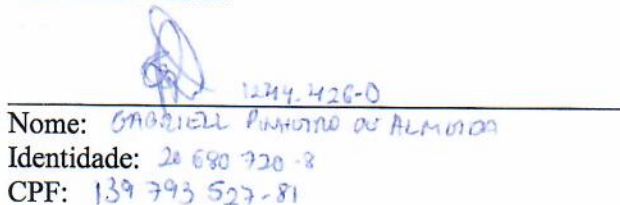 1244.426-0
Nome: GABRIELL PINHEIRO DE ALMEIDA
Identidade: 20 680 720-8
CPF: 139 793 527-81